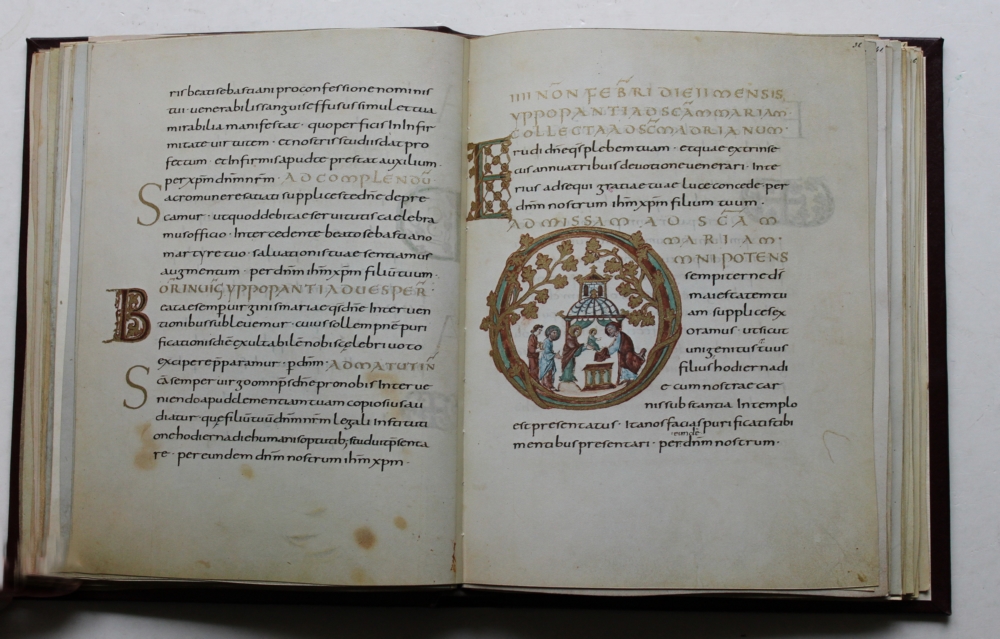 ris beati sebastiani pro confessione nominis
tui venerabilis sanguis effusus simul et tua
mirabilia manifestat · quo perficis In Infir
mitate uirtutem · et nostris studiis dat pro
fectum · et Infirmis apud te prestat auxilium ·
per xpm dnm nrm · AD COMPLENDU
Sacro munere satiati supplices te dne depre
camur · ut quod debitae seruitutis celebra
mus officio · Intercedente beato sebastiano
martyre tuo · saluationis tuae sentiamus
augmentum · per dnm ihm xpm filiu tuum ·
YPPOPANTI AD UESPER
Beatae semper uirginis mariae qs dne Interuen
tionibus subleuemur · cuius sollempne puri
ficationis die exultabile nobis celebri uoto
excipere pparamur · p dnm · AD MATUTIN
Sca semper uirgo omnps dne pro nobis Interue
niendo apud clementiam tuam copiosius au
diatur · que filiu tuu dnm nrm legali Institut
one hodierna die humanis optutib;
re · per eundem dnm nostrum ihm xpm ·
36
IIII NON FEBRI DIE II MENSIS
YPPOPANTI AD SCAM MARIAM ·
COLLECTA AD SCM ADRIANUM ·
Erudi dne qs plebem tuam · et quae extrinse
cus annua tribuis deuotione uenerari · Inte
rius adsequi gratiae tuae luce concede · per
dnm nostrum ihm xpm filium tuum ·
AD MISSAM · AD SCAM
MARIAM ·
OMNIPOTENS
sempiterne ds
maiestatem tu
am supplices ex
oramus · ut sicut
unigenitus tuus
filius hodierna di
e cum nostrae car
nis substantia · In templo
est presentatus · Ita nos facias purificatis tibi
mentibus presentari · per dnm nostrum ·